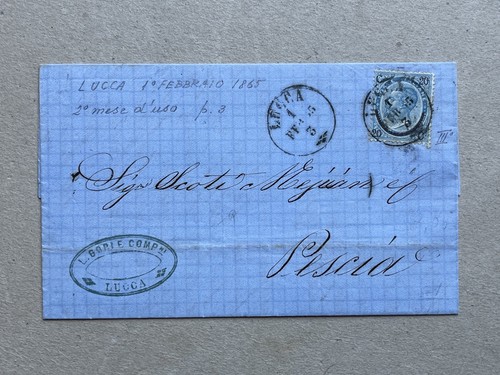 LUCCA 1º FEBBRAIO 1865
2º mese d'uso p. 3
LUCCA
1
FEB 65
3
C. 20
LUCCA
IIIº
Sigr Scoti Mejean é C
Pescia
L. GORI E COMP.NI
LUCCA